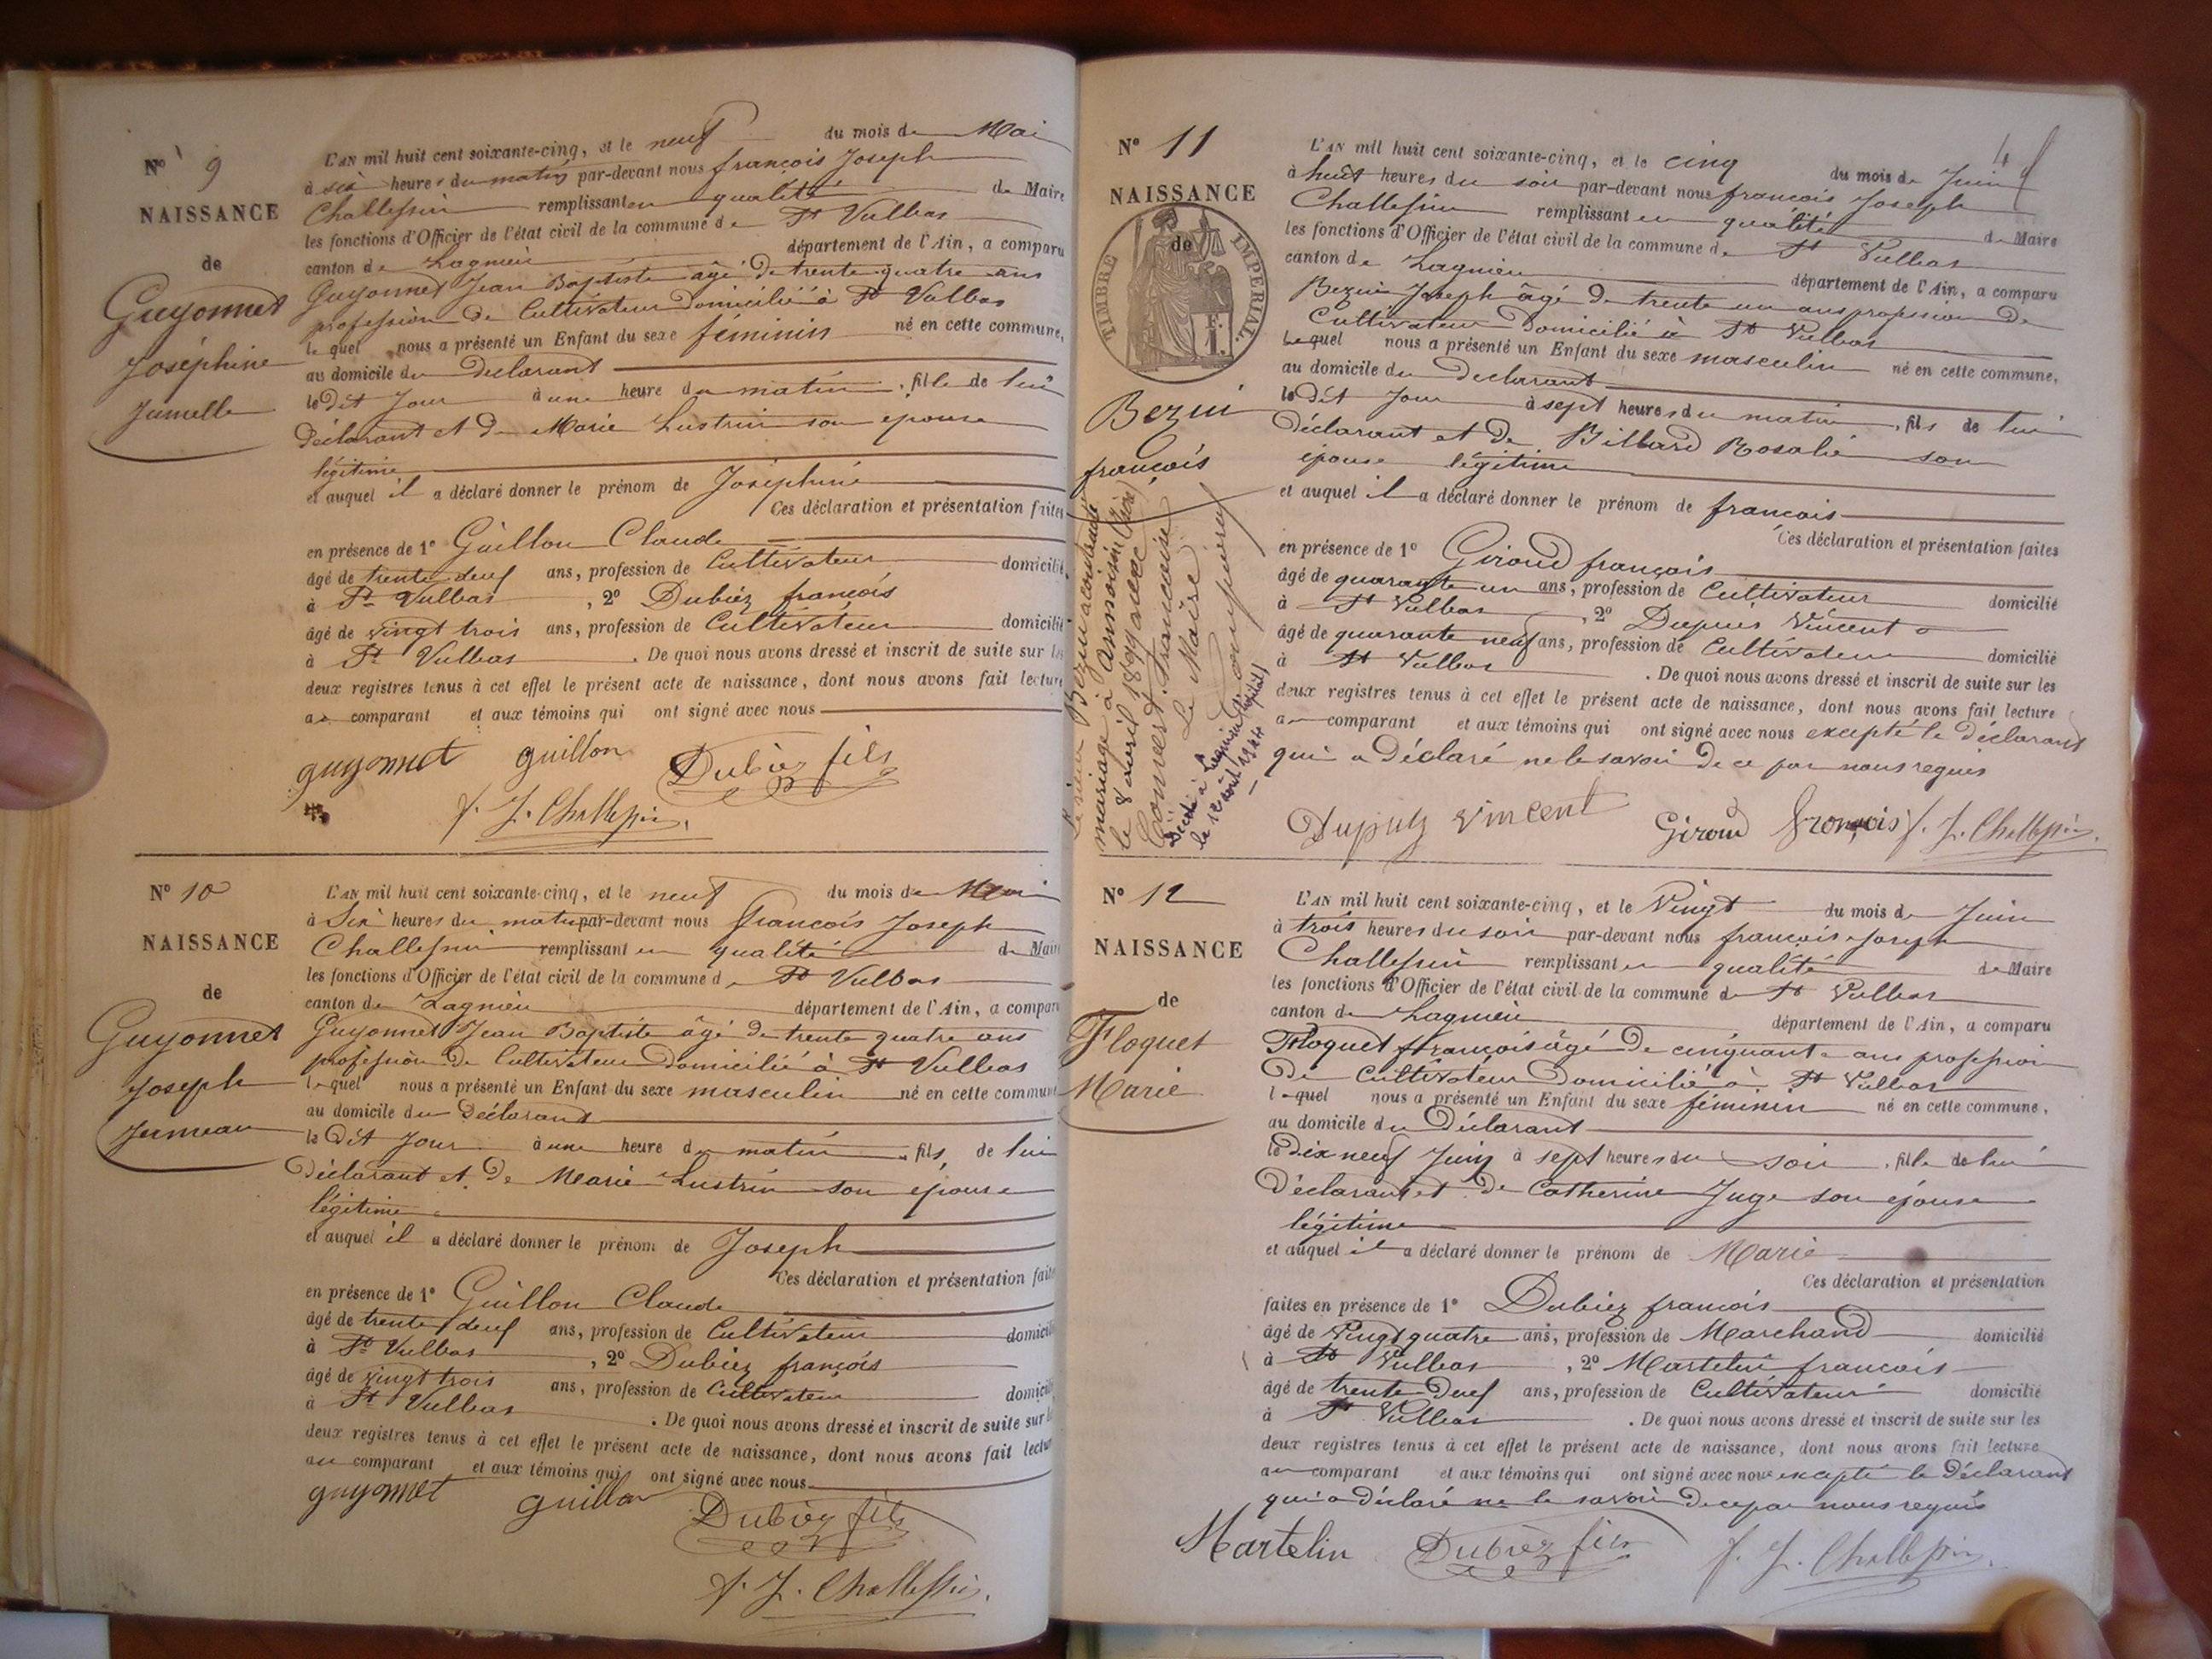 N° 9
NAISSANCE
de
Guyonnet
Joséphine
Jumelle
L'AN mil huit cent soixante-cinq, et le neuf du mois de Mai
à six heures du matin par-devant nous françois Joseph
Challessin remplissant en qualité de Maire
les fonctions d'Officier de l'état civil de la commune de St Vulbas
canton de Lagnieu département de l'Ain, a comparu
Guyonnet Jean Baptiste âgé de trente quatre ans
profession de Cultivateur domicilié à St Vulbas
lequel nous a présenté un Enfant du sexe féminin né en cette commune,
au domicile du déclarant
le dit jour à une heure du matin, fille de lui
déclarant et de Marie Lustrin son épouse
légitime
et auquel il a déclaré donner le prénom de Joséphine
Ces déclaration et présentation faites
en présence de 1° Guillon Claude
âgé de trente deuf ans, profession de Cultivateur domicilié
à St Vulbas, 2° Dubiez françois
âgé de vingt trois ans, profession de Cultivateur domicilié
à St Vulbas. De quoi nous avons dressé et inscrit de suite sur les
deux registres tenus à cet effet le présent acte de naissance, dont nous avons fait lecture
au comparant et aux témoins qui ont signé avec nous
guyonnet guillon Dubiez fils
f. J. Challessin.
N° 10
NAISSANCE
de
Guyonnet
Joseph
Jumeau
L'AN mil huit cent soixante-cinq, et le neuf du mois de Mai
à Six heures du matin par-devant nous françois Joseph
Challessin remplissant en qualité de Maire
les fonctions d'Officier de l'état civil de la commune de St Vulbas
canton de Lagnieu département de l'Ain, a comparu
Guyonnet Jean Baptiste âgé de trente quatre ans
profession de Cultivateur domicilié à St Vulbas
lequel nous a présenté un Enfant du sexe masculin né en cette commune
au domicile du Déclarant
le Dit jour à une heure du matin, fils de lui
déclarant et de Marie Lustrin son épouse
légitime
et auquel il a déclaré donner le prénom de Joseph
Ces déclaration et présentation faites
en présence de 1° Guillon Claude
âgé de trente deuf ans, profession de Cultivateur domicilié
à St Vulbas, 2° Dubiez françois
âgé de vingt trois ans, profession de Cultivateur domicilié
à St Vulbas. De quoi nous avons dressé et inscrit de suite sur les
deux registres tenus à cet effet le présent acte de naissance, dont nous avons fait lecture
au comparant et aux témoins qui ont signé avec nous
guyonnet guillon Dubiez fils
f. J. Challessin.
4
N° 11
NAISSANCE
de
TIMBRE IMPERIAL.
Bezui
françois
mariage à Annoisin (Isère)
le 8 avril 1899 avec
Comers Françoise
Le Maire
Décédé à Lagnieu (hôpital)
le 12 août 1944
L'AN mil huit cent soixante-cinq, et le cinq du mois de Juin
à huit heures du soir par-devant nous françois Joseph
Challessin remplissant en qualité de Maire
les fonctions d'Officier de l'état civil de la commune de St Vulbas
canton de Lagnieu département de l'Ain, a comparu
Bezui Joseph âgé de trente un ans profession de
Cultivateur domicilié à St Vulbas
lequel nous a présenté un Enfant du sexe masculin né en cette commune,
au domicile du Déclarant
le dit jour à sept heures du matin, fils de lui
déclarant et de Billard Rosalie son
épouse légitime
et auquel il a déclaré donner le prénom de françois
Ces déclaration et présentation faites
en présence de 1° Giroud françois
âgé de quarante un ans, profession de Cultivateur domicilié
à St Vulbas, 2° Dupuis Vincent
âgé de quarante neuf ans, profession de Cultivateur domicilié
à St Vulbas. De quoi nous avons dressé et inscrit de suite sur les
deux registres tenus à cet effet le présent acte de naissance, dont nous avons fait lecture
au comparant et aux témoins qui ont signé avec nous excepté le déclarant
qui a déclaré ne le savoir de ce par nous requis
Dupuy vincent Giroud françois f. J. Challessin.
N° 12
NAISSANCE
de
Floquet
Marie
L'AN mil huit cent soixante-cinq, et le Vingt du mois de Juin
à trois heures du soir par-devant nous françois Joseph
Challessin remplissant en qualité de Maire
les fonctions d'Officier de l'état civil de la commune de St Vulbas
canton de Lagnieu département de l'Ain, a comparu
Floquet françois âgé de cinquante ans profession
de Cultivateur Domicilié à St Vulbas
lequel nous a présenté un Enfant du sexe féminin né en cette commune,
au domicile du Déclarant
le dix neuf Juin à sept heures du soir, fille de lui
Déclarant et de Catherine Juge son épouse
légitime
et auquel il a déclaré donner le prénom de Marie
Ces déclaration et présentation
faites en présence de 1° Dubiez françois
âgé de Vingt quatre ans, profession de Marchand domicilié
à St Vulbas, 2° Martelin françois
âgé de trente deuf ans, profession de Cultivateur domicilié
à St Vulbas. De quoi nous avons dressé et inscrit de suite sur les
deux registres tenus à cet effet le présent acte de naissance, dont nous avons fait lecture
au comparant et aux témoins qui ont signé avec nous excepté le Déclarant
qui a déclaré ne le savoir de ce par nous requis
Martelin Dubiez fils f. J. Challessin.